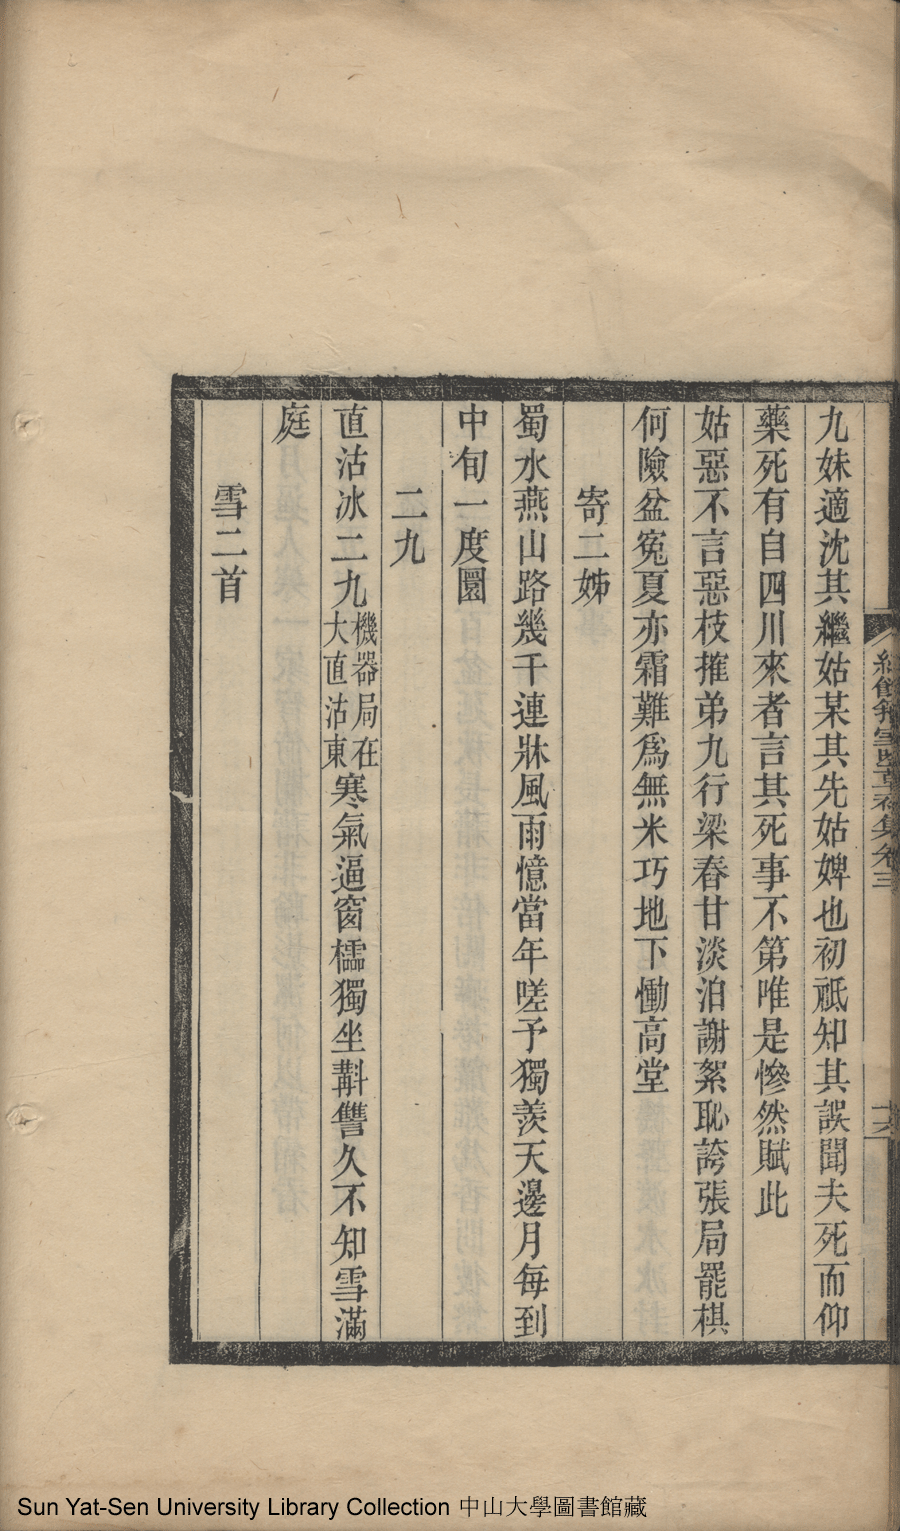 九妹適沈其繼姑某其先姑婢也初祗知其誤聞夫死而仰
藥死有自四川來者言其死事不第唯是慘然賦此
姑惡不言惡枝摧弟九行梁舂甘淡泊謝絮恥誇張局罷棋
何險盆冤夏亦霜難爲無米巧地下慟高堂
寄二姊
蜀水燕山路幾千連牀風雨憶當年嗟予獨羨天邊月每到
中旬一度圓
二九
直沽冰二九機器局在大直沽東寒氣逼窗櫺獨坐斠讐久不知雪滿
庭
雪二首
卷三
十六
Sun Yat-Sen University Library Collection 中山大學圖書館藏